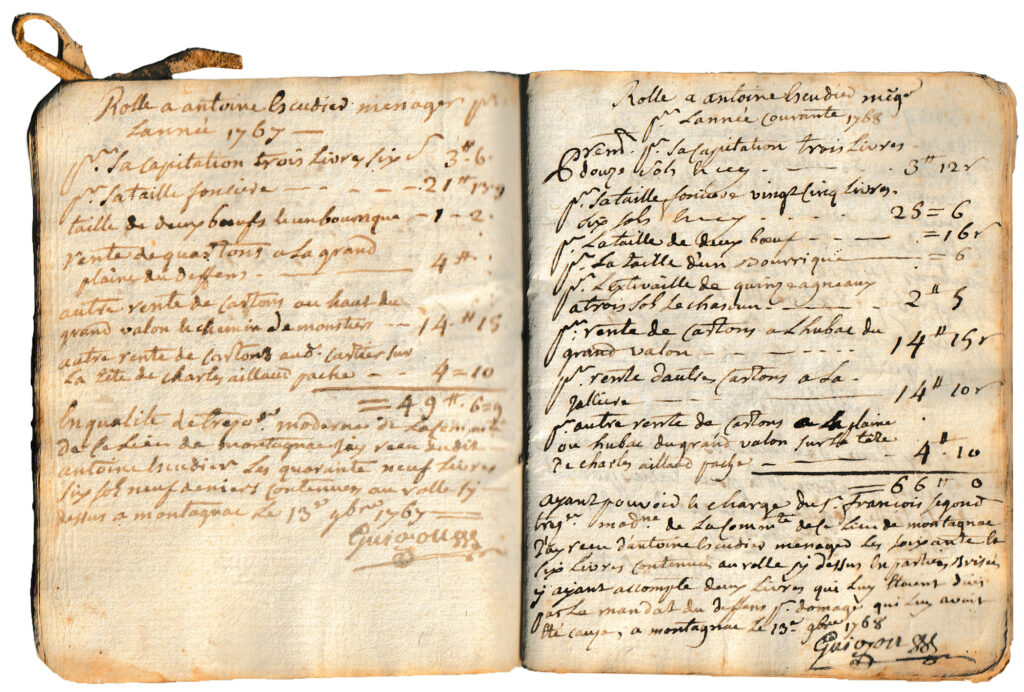 Rolle a antoine Escudier menager pr.
Lannée 1767
pr. sa capitation trois Livres six s 3 ⁗ 6
pr. sa taille fonsiere - - - - - 21 ⁗ 13
taille de deux bœufs le un bourrique - 1 - 2
rente de quartons a La grand
plaine du deffens - 4 ⁗
autre rente de cartons au haut du
grand valon le chemin de monstiers - - 14 ⁗ 15
autre rente de Cartons aud. cartier sur
La tête de charles aillaud pache - - 4 = 10
= 49 ⁗ 6 = 9
En qualité de trezo.r moderne de La comm.té
de ce Lieu de montagnac j'ay receu dudit
antoine Escudier Les quarante neuf Livres
six sol neuf deniers contenues au rolle sy
dessus a montagnac Le 13e 9bre 1767
Guigou
Rolle a antoine Escudier mége
pr. Lannée Courante 1768
prem.t pr. sa capitation trois Livres -
douze sols le cy - 3 ⁗ 12 s
pr. sa taille fonciere vingt Cinq Livres
six sols le cy - - - - 25 = 6
pr. La taille de deux bœuf - - - = 16 s
pr. La taille d'un Bourrique = 6
pr. L'estivaille de quinze agneaux
a trois sol Le chacun 2 ⁗ 5
pr. rente de Cartons a Lhubac du
grand valon - - - - - 14 ⁗ 15 s
pr. rente dautres Cartons a La -
jalliere 14 ⁗ 10 s
pr. autre rente de Cartons a la plaine
ou hubac du grand valon sur La tête
de charles aillaud pache - - - 4 ⁗ 10
= 66 ⁗ 0
ayant pouvoir le charge du Sr. François Segond
trezr. modne de La Comm.te de Ce Lieu de montagnac
J'ay receu d'antoine Escudier menager Les soixante le
six Livres contenues au rolle sy dessus En parties brisées
y ayant accompte deux Livres qui Luy Etoient dûes
par Le mandat du deffens pr. domage qui Luy avoit
Eté cause, a montagnac Le 13e 9bre 1768
Guigou